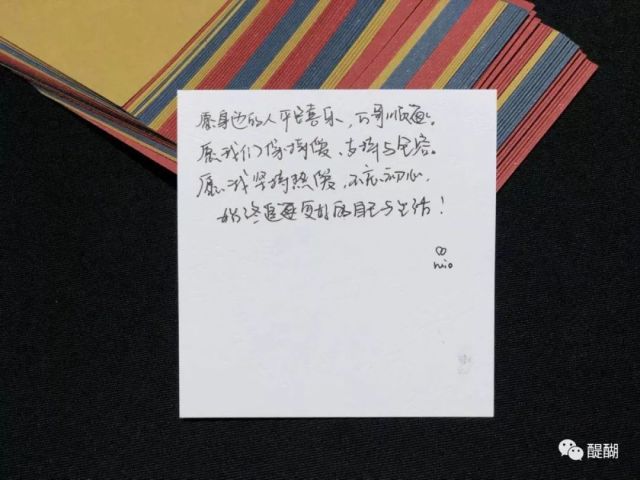 愿身边的人平安喜乐,万事顺遂。
愿我们保持爱、支持与包容。
愿我坚持热爱,不忘初心,
始终追逐更好的自己与生活!
mio
醍醐